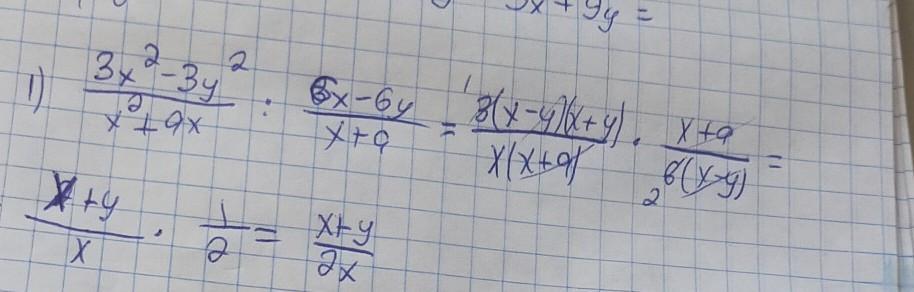 3x + 9y =
1) (3x² - 3y²)/(x² + 9x) : (6x - 6y)/(x + 9) = (3(x-y)(x+y))/(x(x+9)) · (x+9)/(6(x-y)) =
(x+y)/x · 1/2 = (x+y)/(2x)